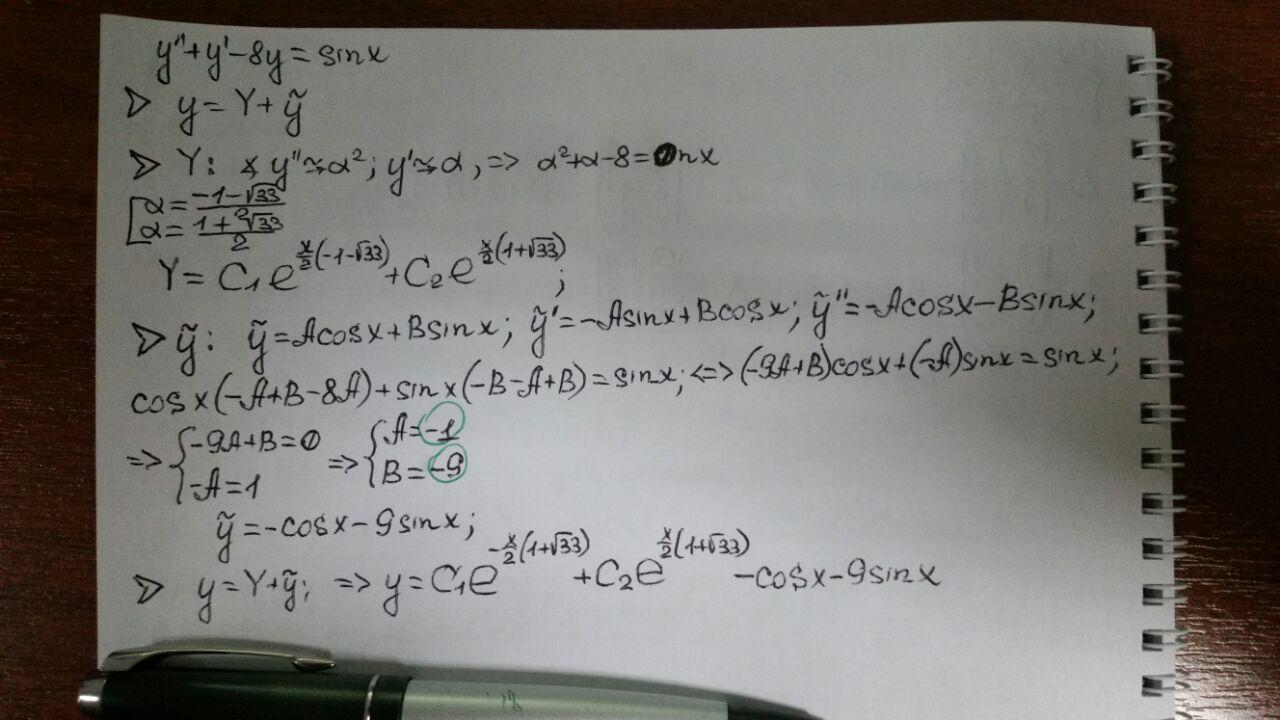 y''+y'-8y=sinx
▷ y=Y+ỹ
▷ Y: ∡ y''≈α²; y'≈α, => α²+α-8=0nx
[α=(-1-√33)/2
[α=(1+√33)/2
Y=C₁e^(x/2(-1-√33))+C₂e^(x/2(1+√33));
▷ỹ: ỹ=Acosx+Bsinx; ỹ'=-Asinx+Bcosx; ỹ''=-Acosx-Bsinx;
cosx(-A+B-8A)+sinx(-B-A+B)=sinx; <=> (-9A+B)cosx+(-A)sinx=sinx;
=> {-9A+B=0 => {A=-1
{-A=1 {B=-9
ỹ=-cosx-9sinx;
▷ y=Y+ỹ; => y=C₁e^(-x/2(1+√33))+C₂e^(x/2(1+√33))-cosx-9sinx